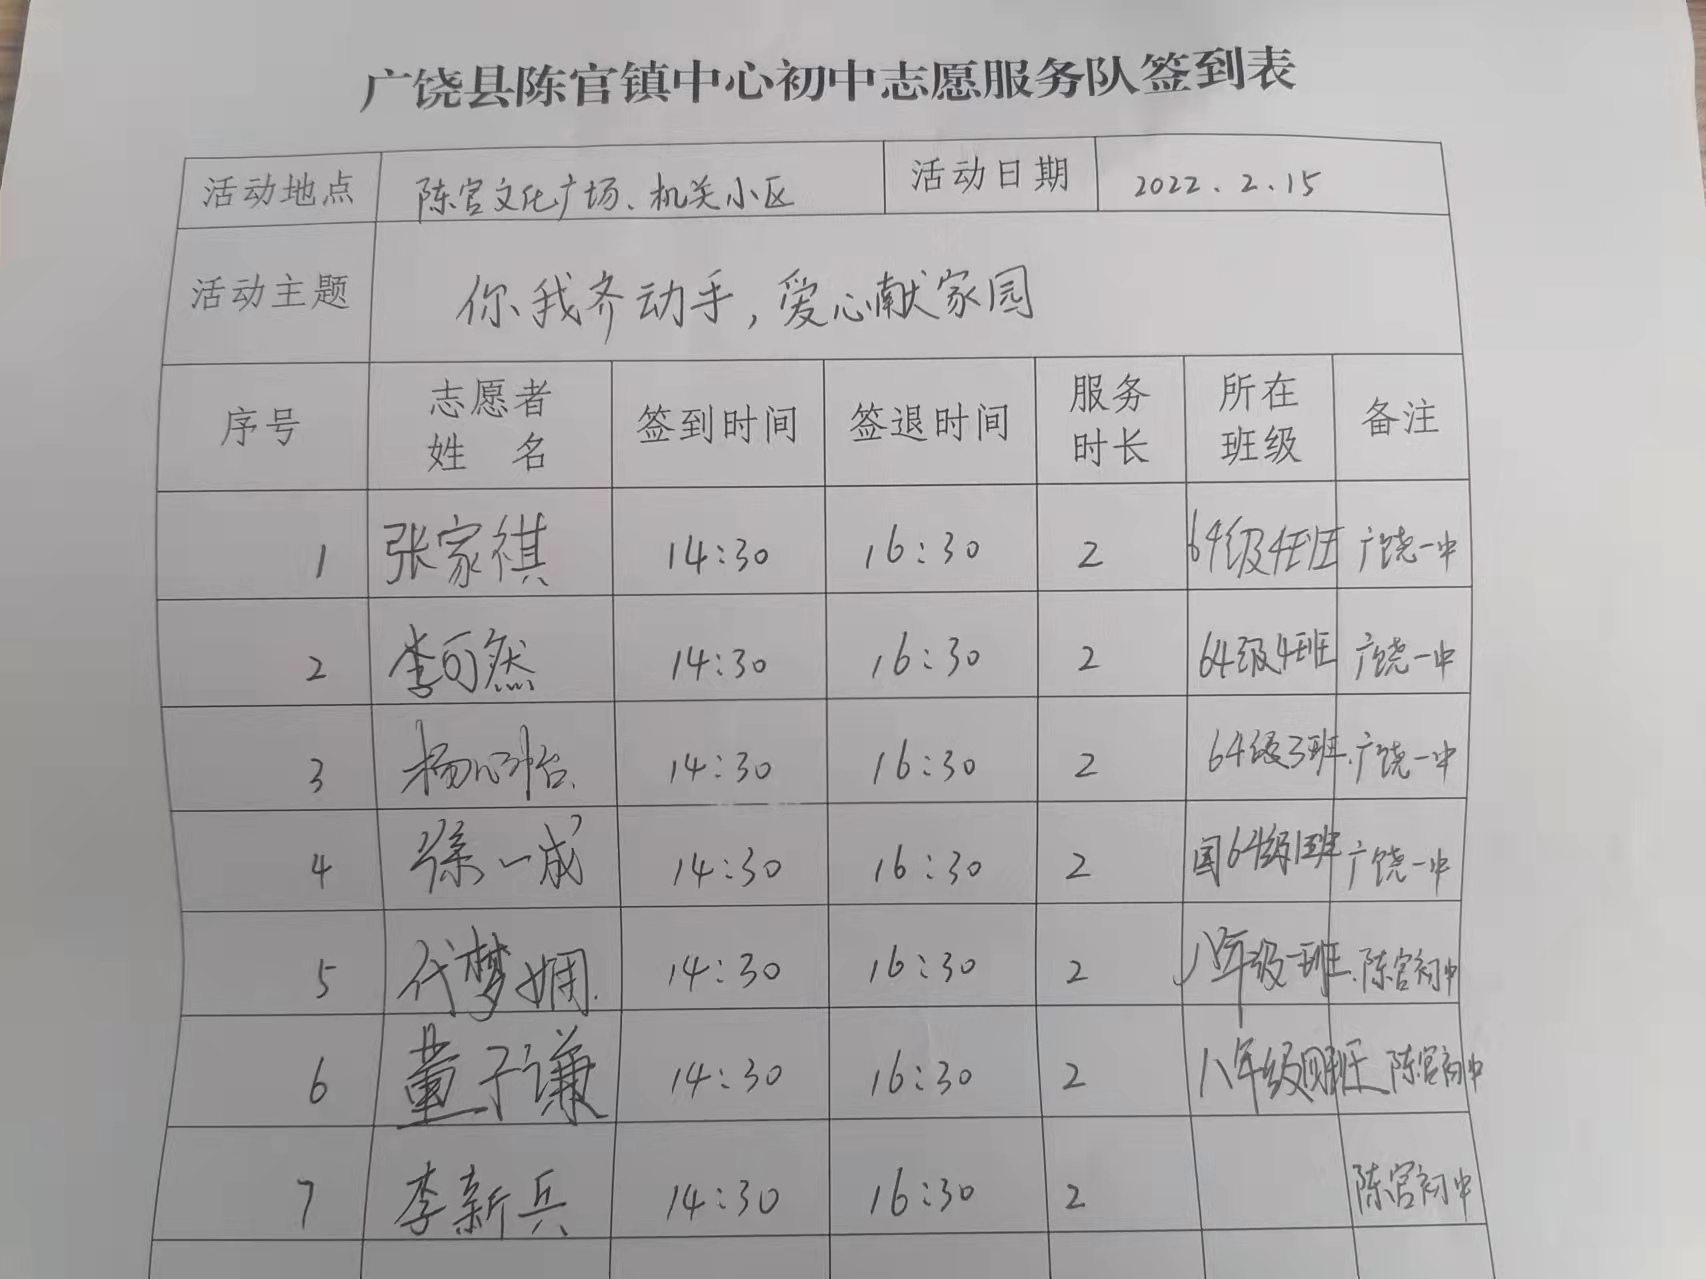 广饶县陈官镇中心初中志愿服务队签到表
活动地点 陈官文化广场、机关小区 活动日期 2022.2.15
活动主题 你我齐动手,爱心献家园
序号 志愿者姓名 签到时间 签退时间 服务时长 所在班级 备注
1 张家祺 14:30 16:30 2 64级4班 广饶一中
2 李可然 14:30 16:30 2 64级4班 广饶一中
3 杨心怡 14:30 16:30 2 64级3班 广饶一中
4 徐一成 14:30 16:30 2 64级1班 广饶一中
5 代梦娴 14:30 16:30 2 八年级一班 陈官初中
6 董子谦 14:30 16:30 2 八年级四班 陈官初中
7 李新兵 14:30 16:30 2 陈官初中